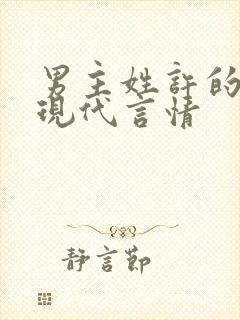 男主姓許的
現代言情
靜言節